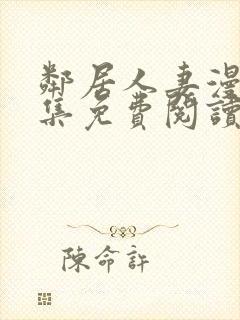 鄰居人妻漫
集免費閱讀
陳命許